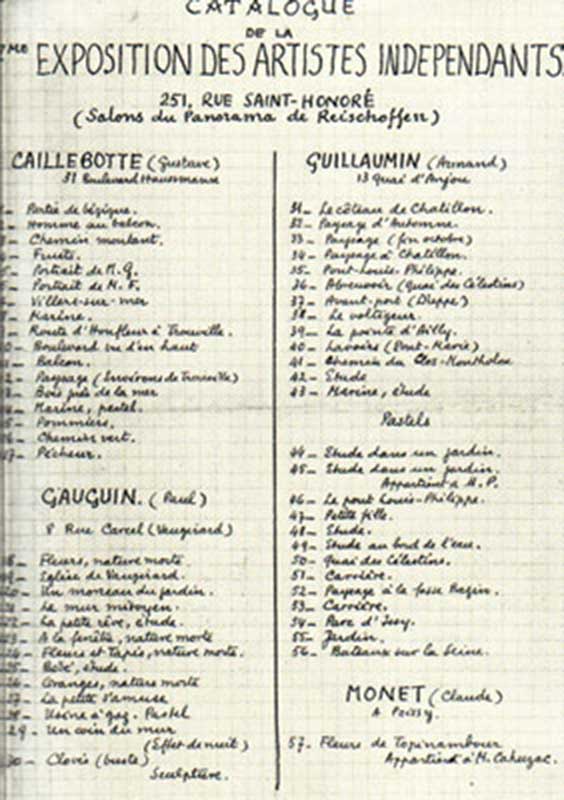 CATALOGUE
DE LA
7me EXPOSITION DES ARTISTES INDEPENDANTS
251, RUE SAINT-HONORÉ
(Salons du Panorama de Reischoffen)
CAILLEBOTTE (Gustave)
31 Boulevard Haussmann
Partie de bézigue.
Homme au balcon.
Chemin montant.
Fruits.
Portrait de M. G.
Portrait de M. F.
Villers-sur-mer
Marine.
Route d'Honfleur à Trouville.
Boulevard vu d'en haut
Balcon.
2 - Paysage (Environs de Trouville)
Bois près de la mer
Marine, pastel.
Pommiers.
Chemin vert.
7 - Pêcheur.
GAUGUIN. (Paul)
8 Rue Carcel (Vaugirard)
8 - Fleurs, nature morte.
Eglise de Vaugirard.
20 - Un morceau du jardin.
Le mur mitoyen.
22 - La petite rêve, étude.
23 - A la fenêtre, nature morte
24 - Fleurs et Tapis, nature morte.
25 - Bébé, étude.
26 - Oranges, nature morte
27 - La petite s'amuse
28 - Usine à gaz. Pastel
29 - Un coin du mur
(Effet de nuit)
30 - Clovis (buste)
Sculpture.
GUILLAUMIN (Armand)
13 Quai d'Anjou
31 - Le côteau de Chatillon.
32 - Paysage d'Automne.
33 - Paysage (fin octobre)
34 - Paysage à Chatillon.
35 - Pont-Louis-Philippe.
36 - Abreuvoir (Quai des Célestins)
37 - Avant-port (Dieppe)
38 - Le voltigeur.
39 - La pointe d'Ailly.
40 - Lavoirs (Pont-Marie)
41 - Chemin du Clos-Montholon
42 - Etude
43 - Marine, étude
Pastels
44 - Etude dans un jardin.
45 - Etude dans un jardin.
Appartient à M. P.
46 - Le pont Louis-Philippe.
47 - Petite fille.
48 - Etude.
49 - Etude au bord de l'eau.
50 - Quai des Célestins.
51 - Carrière.
52 - Paysage à la fosse Bazin.
53 - Carrière.
54 - Parc d'Issy.
55 - Jardin.
56 - Bateaux sur la Seine.
MONET (Claude)
A Poissy.
57 - Fleurs de Topinambour
Appartient à M. Cahuzac.